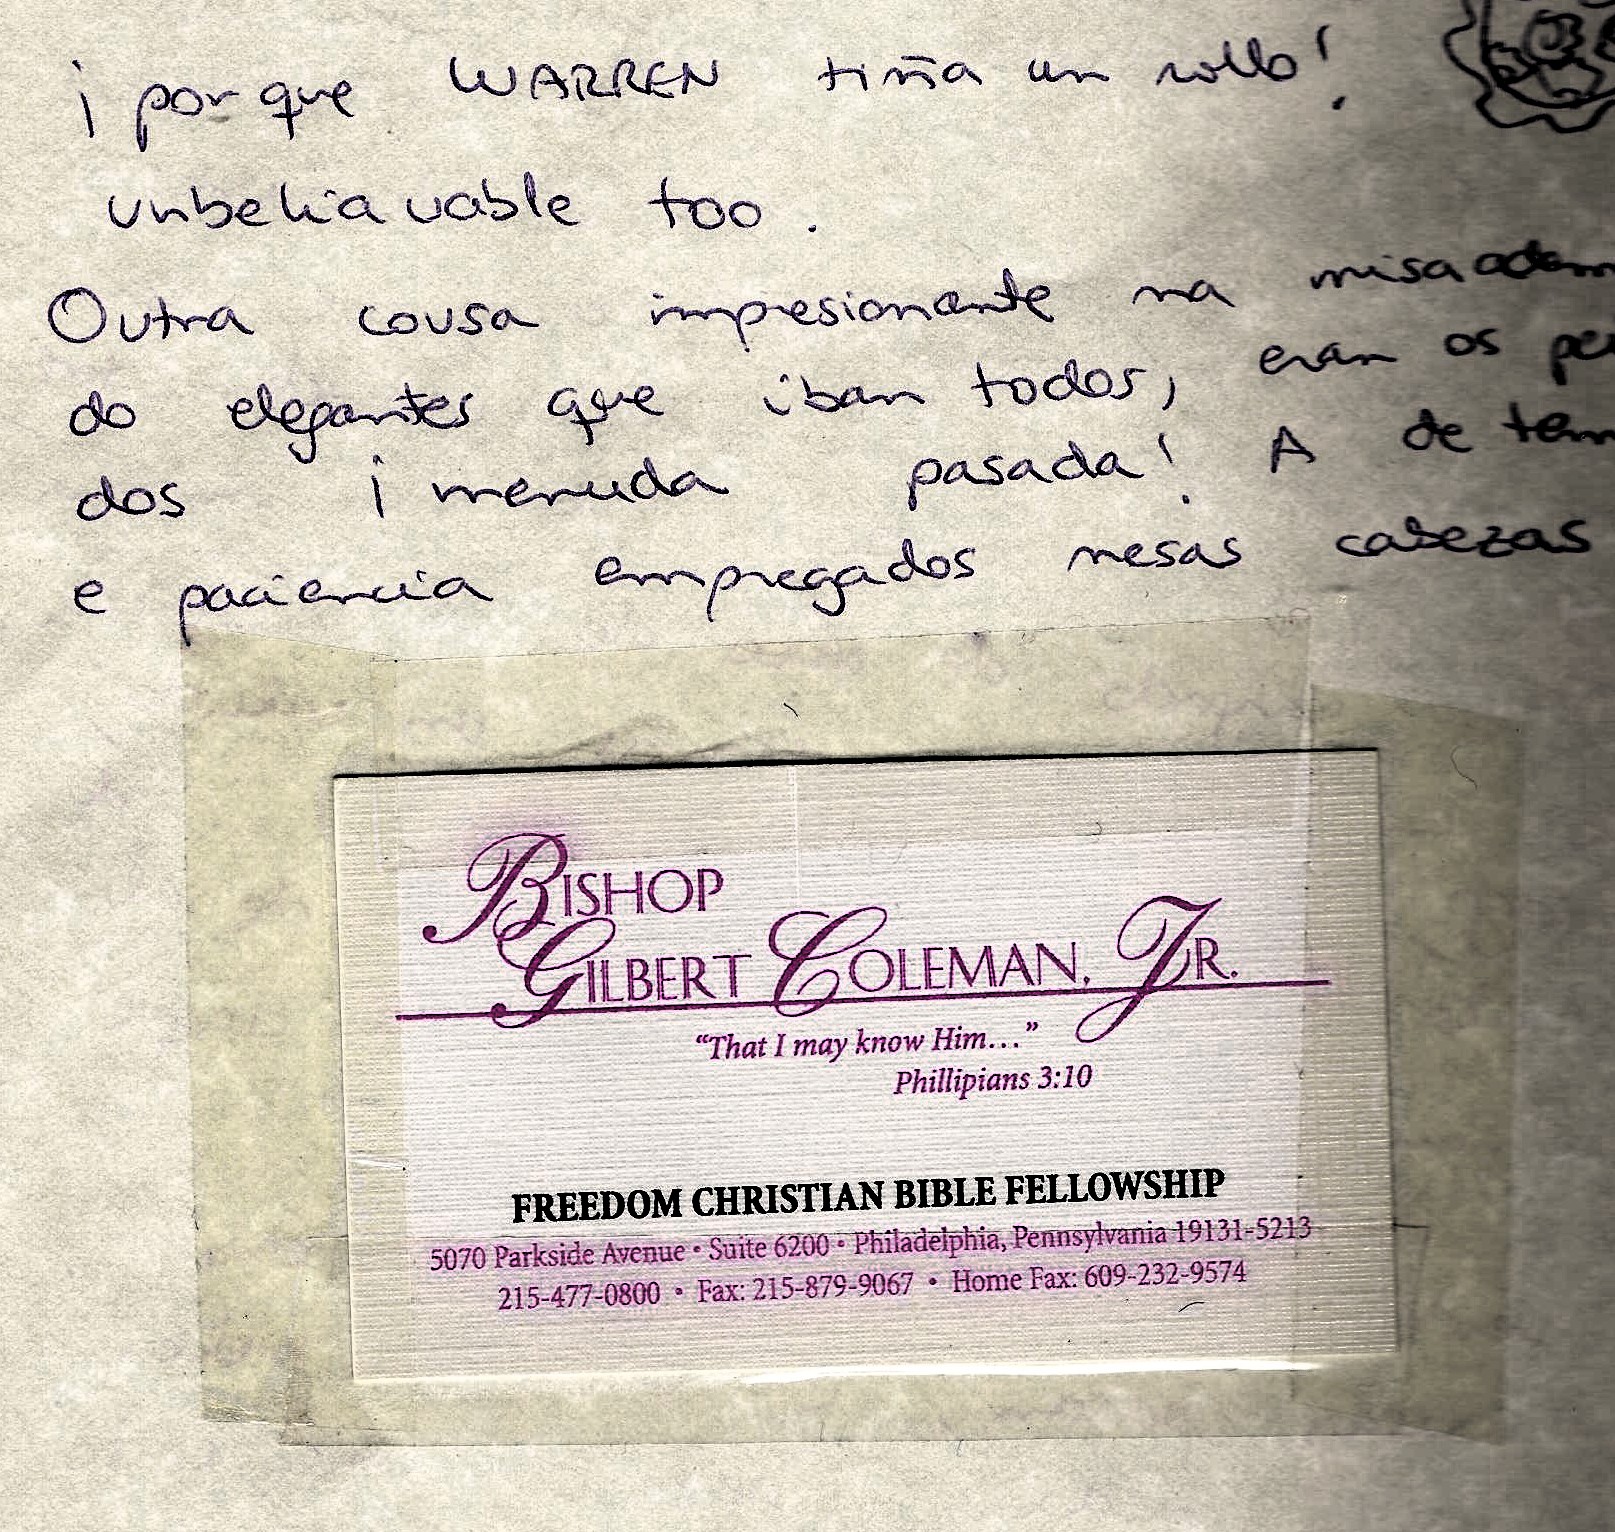 ¡porque WARREN tiña un rollo!
unbeliavable too.
Outra cousa impresionante na misa adem
do elegantes que iban todos, eran os pei
dos ¡menuda pasada! A de tem
e paciencia empregados nesas cabezas
BISHOP
GILBERT COLEMAN, JR.
“That I may know Him...”
Phillipians 3:10
FREEDOM CHRISTIAN BIBLE FELLOWSHIP
5070 Parkside Avenue • Suite 6200 • Philadelphia, Pennsylvania 19131-5213
215-477-0800 • Fax: 215-879-9067 • Home Fax: 609-232-9574